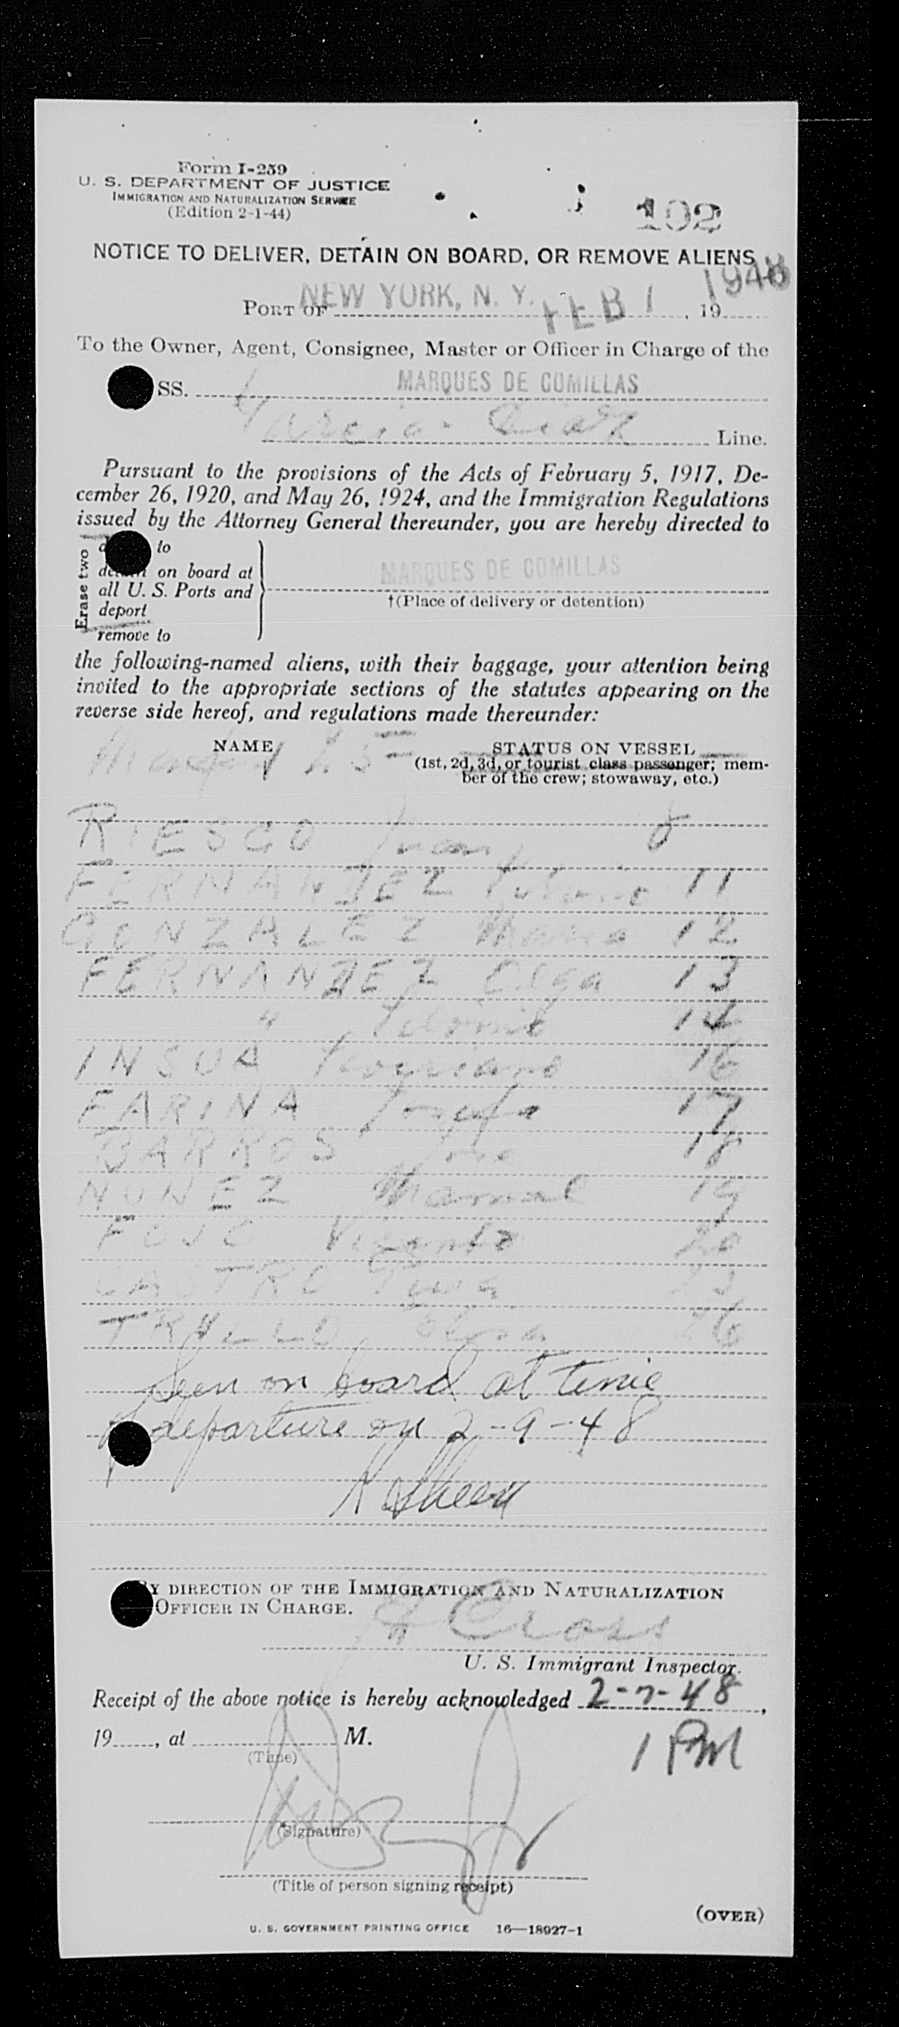 Form I-259
U. S. DEPARTMENT OF JUSTICE
IMMIGRATION AND NATURALIZATION SERVICE
(Edition 2-1-44)
102
NOTICE TO DELIVER, DETAIN ON BOARD, OR REMOVE ALIENS
PORT OF NEW YORK, N. Y. FEB 1948, 19
To the Owner, Agent, Consignee, Master or Officer in Charge of the
SS. MARQUES DE COMILLAS
Garcia Diaz Line.
Pursuant to the provisions of the Acts of February 5, 1917, De-
cember 26, 1920, and May 26, 1924, and the Immigration Regulations
issued by the Attorney General thereunder, you are hereby directed to
Erase two
to
detain on board at
all U. S. Ports and
deport
remove to
MARQUES DE COMILLAS
†(Place of delivery or detention)
the following-named aliens, with their baggage, your attention being
invited to the appropriate sections of the statutes appearing on the
reverse side hereof, and regulations made thereunder:
NAME
STATUS ON VESSEL
(1st, 2d, 3d, or tourist class passenger; mem-
ber of the crew; stowaway, etc.)
RIESGO Juan 8
FERNANDEZ 11
GONZALEZ Maria 12
FERNANDEZ Olga 13
" 14
INSUA 16
FARINA Josefa 17
BARROS Jose 18
NUNEZ Manuel 19
Vicente 20
CASTRO
26
Seen on board at time
of departure on 2-9-48
BY DIRECTION OF THE IMMIGRATION AND NATURALIZATION
OFFICER IN CHARGE.
Cross
U. S. Immigrant Inspector.
Receipt of the above notice is hereby acknowledged 2-7-48,
19, at M. 1 PM
(Time)
(Signature)
(Title of person signing receipt)
(OVER)
U. S. GOVERNMENT PRINTING OFFICE 16—18027-1